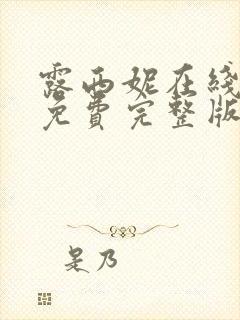 露西妮在线
免费完整版
是乃